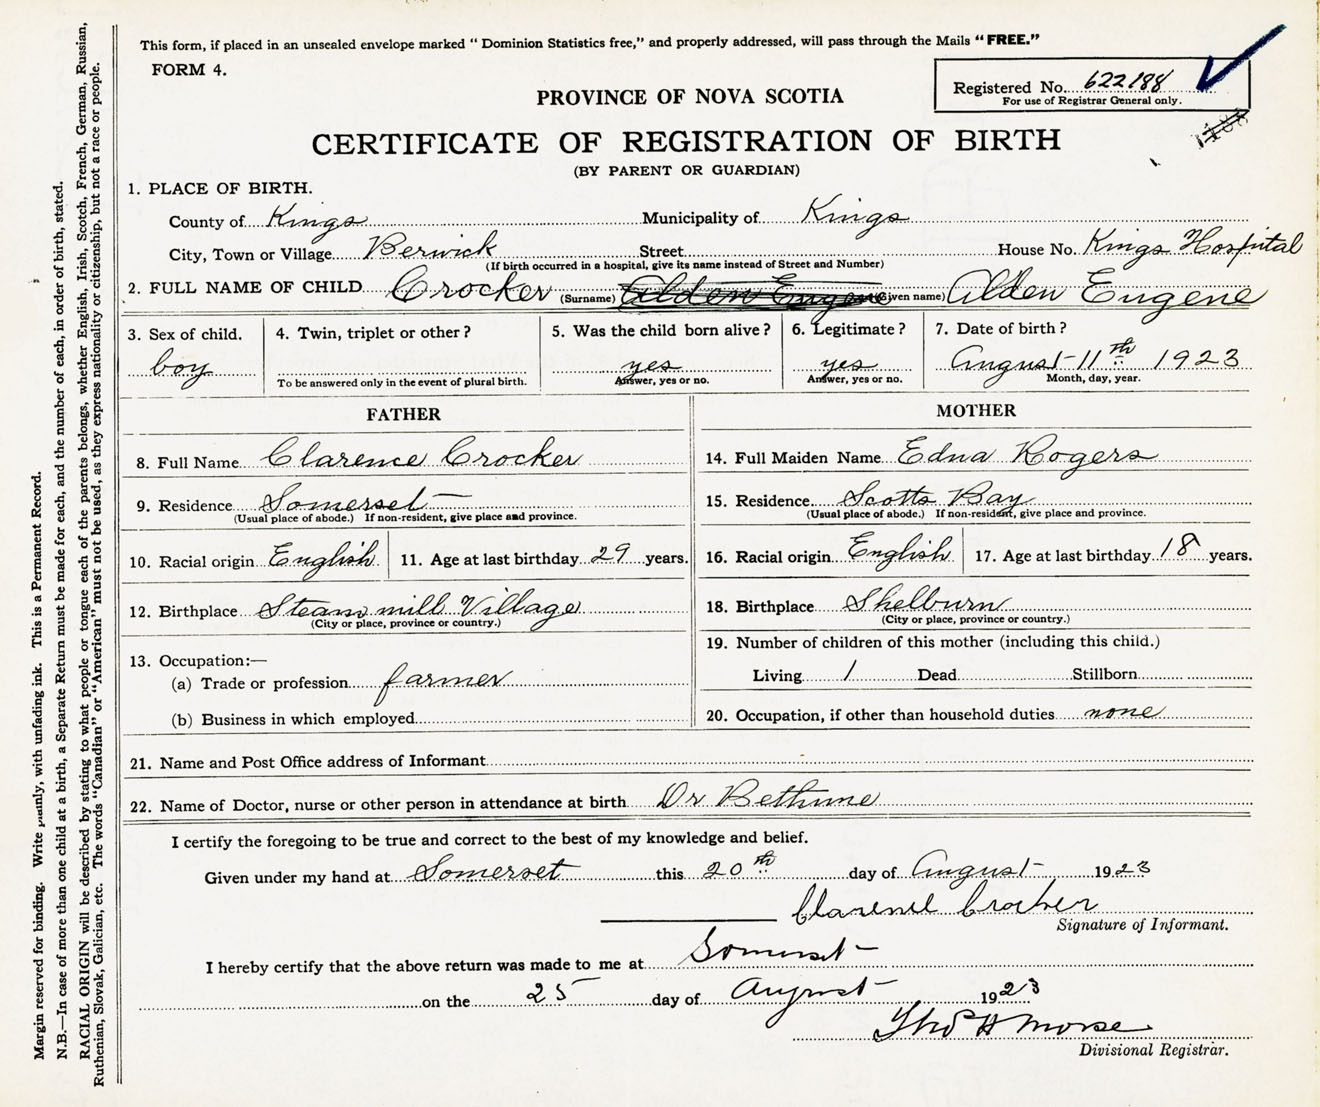 This form, if placed in an unsealed envelope marked " Dominion Statistics free," and properly addressed, will pass through the Mails " FREE."
FORM 4.
Registered No. 622188
For use of Registrar General only.
PROVINCE OF NOVA SCOTIA
CERTIFICATE OF REGISTRATION OF BIRTH
(BY PARENT OR GUARDIAN)
1. PLACE OF BIRTH.
County of Kings Municipality of Kings
City, Town or Village Berwick Street House No. Kings Hospital
(If birth occurred in a hospital, give its name instead of Street and Number)
2. FULL NAME OF CHILD Crocker (Surname) Alden Eugene (Given name) Alden Eugene
3. Sex of child. 4. Twin, triplet or other? 5. Was the child born alive? 6. Legitimate? 7. Date of birth?
boy yes yes August 11th 1923
To be answered only in the event of plural birth. Answer, yes or no. Answer, yes or no. Month, day, year.
FATHER
8. Full Name Clarence Crocker
9. Residence Somerset
(Usual place of abode.) If non-resident, give place and province.
10. Racial origin English 11. Age at last birthday 29 years.
12. Birthplace Steam mill Village
(City or place, province or country.)
13. Occupation:—
(a) Trade or profession farmer
(b) Business in which employed
MOTHER
14. Full Maiden Name Edna Rogers
15. Residence Scotts Bay
(Usual place of abode.) If non-resident, give place and province.
16. Racial origin English 17. Age at last birthday 18 years.
18. Birthplace Shelburn
(City or place, province or country.)
19. Number of children of this mother (including this child.)
Living 1 Dead Stillborn
20. Occupation, if other than household duties none
21. Name and Post Office address of Informant
22. Name of Doctor, nurse or other person in attendance at birth Dr Bethune
I certify the foregoing to be true and correct to the best of my knowledge and belief.
Given under my hand at Somerset this 20th day of August 1923
Clarence Crocker
Signature of Informant.
I hereby certify that the above return was made to me at Somerset
on the 25 day of August 1923
Thos H Morse
Divisional Registrar.
Margin reserved for binding. Write plainly, with unfading ink. This is a Permanent Record.
N.B.—In case of more than one child at a birth, a Separate Return must be made for each, and the number of each, in order of birth, stated.
RACIAL ORIGIN will be described by stating to what people or tongue each of the parents belongs, whether English, Irish, Scotch, French, German, Russian,
Ruthenian, Slovak, Galician, etc. The words "Canadian" or "American" must not be used, as they express nationality or citizenship, but not a race or people.